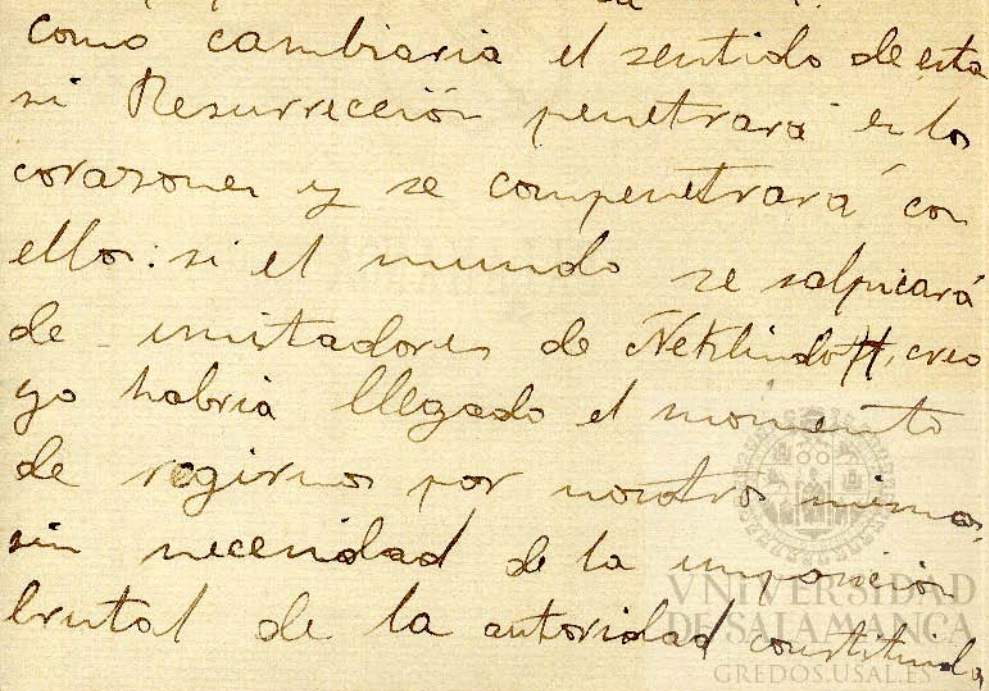 como cambiaria el sentido de esta
si Resurrección penetrará en los
corazones y se compenetrará con
ellos: si el mundo se salpicará
de imitadores de Neklindoff, creo
yo habria llegado el momento
de regirnos por nosotros mismos,
sin necesidad de la imposición
brutal de la autoridad constituida
VNIVERSIDAD
DE SALAMANCA
GREDOS.USAL.ES